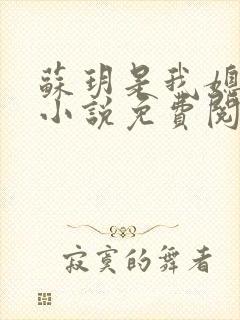 蘇玥是我媳
小說免費閱
寂寞的舞者